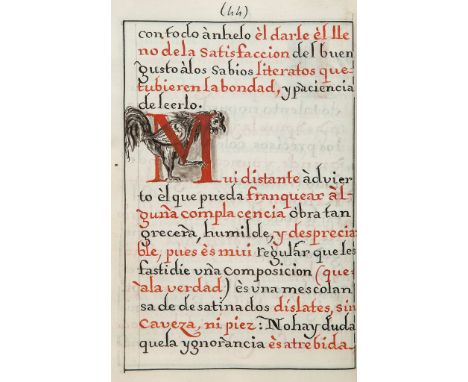 (44)
con todo ànhelo èl darle èl lle
no de la Satisfaccion del buen
gusto àlos Sabios literatos que
tubieren la bondad, y paciencia
de leerlo.
Mui distante àdvier
to èl que pueda franquear àl
guña complacencia obra tan
grecera, humilde, y desprecia
ble, pues ès mui regular que les
fastidie vña Composicion (que
àla verdad) ès vna mescolan
sa de desatinados dislates, sin
Caveza, ni piez: No hay duda
quela ygnorancia ès atrebida.